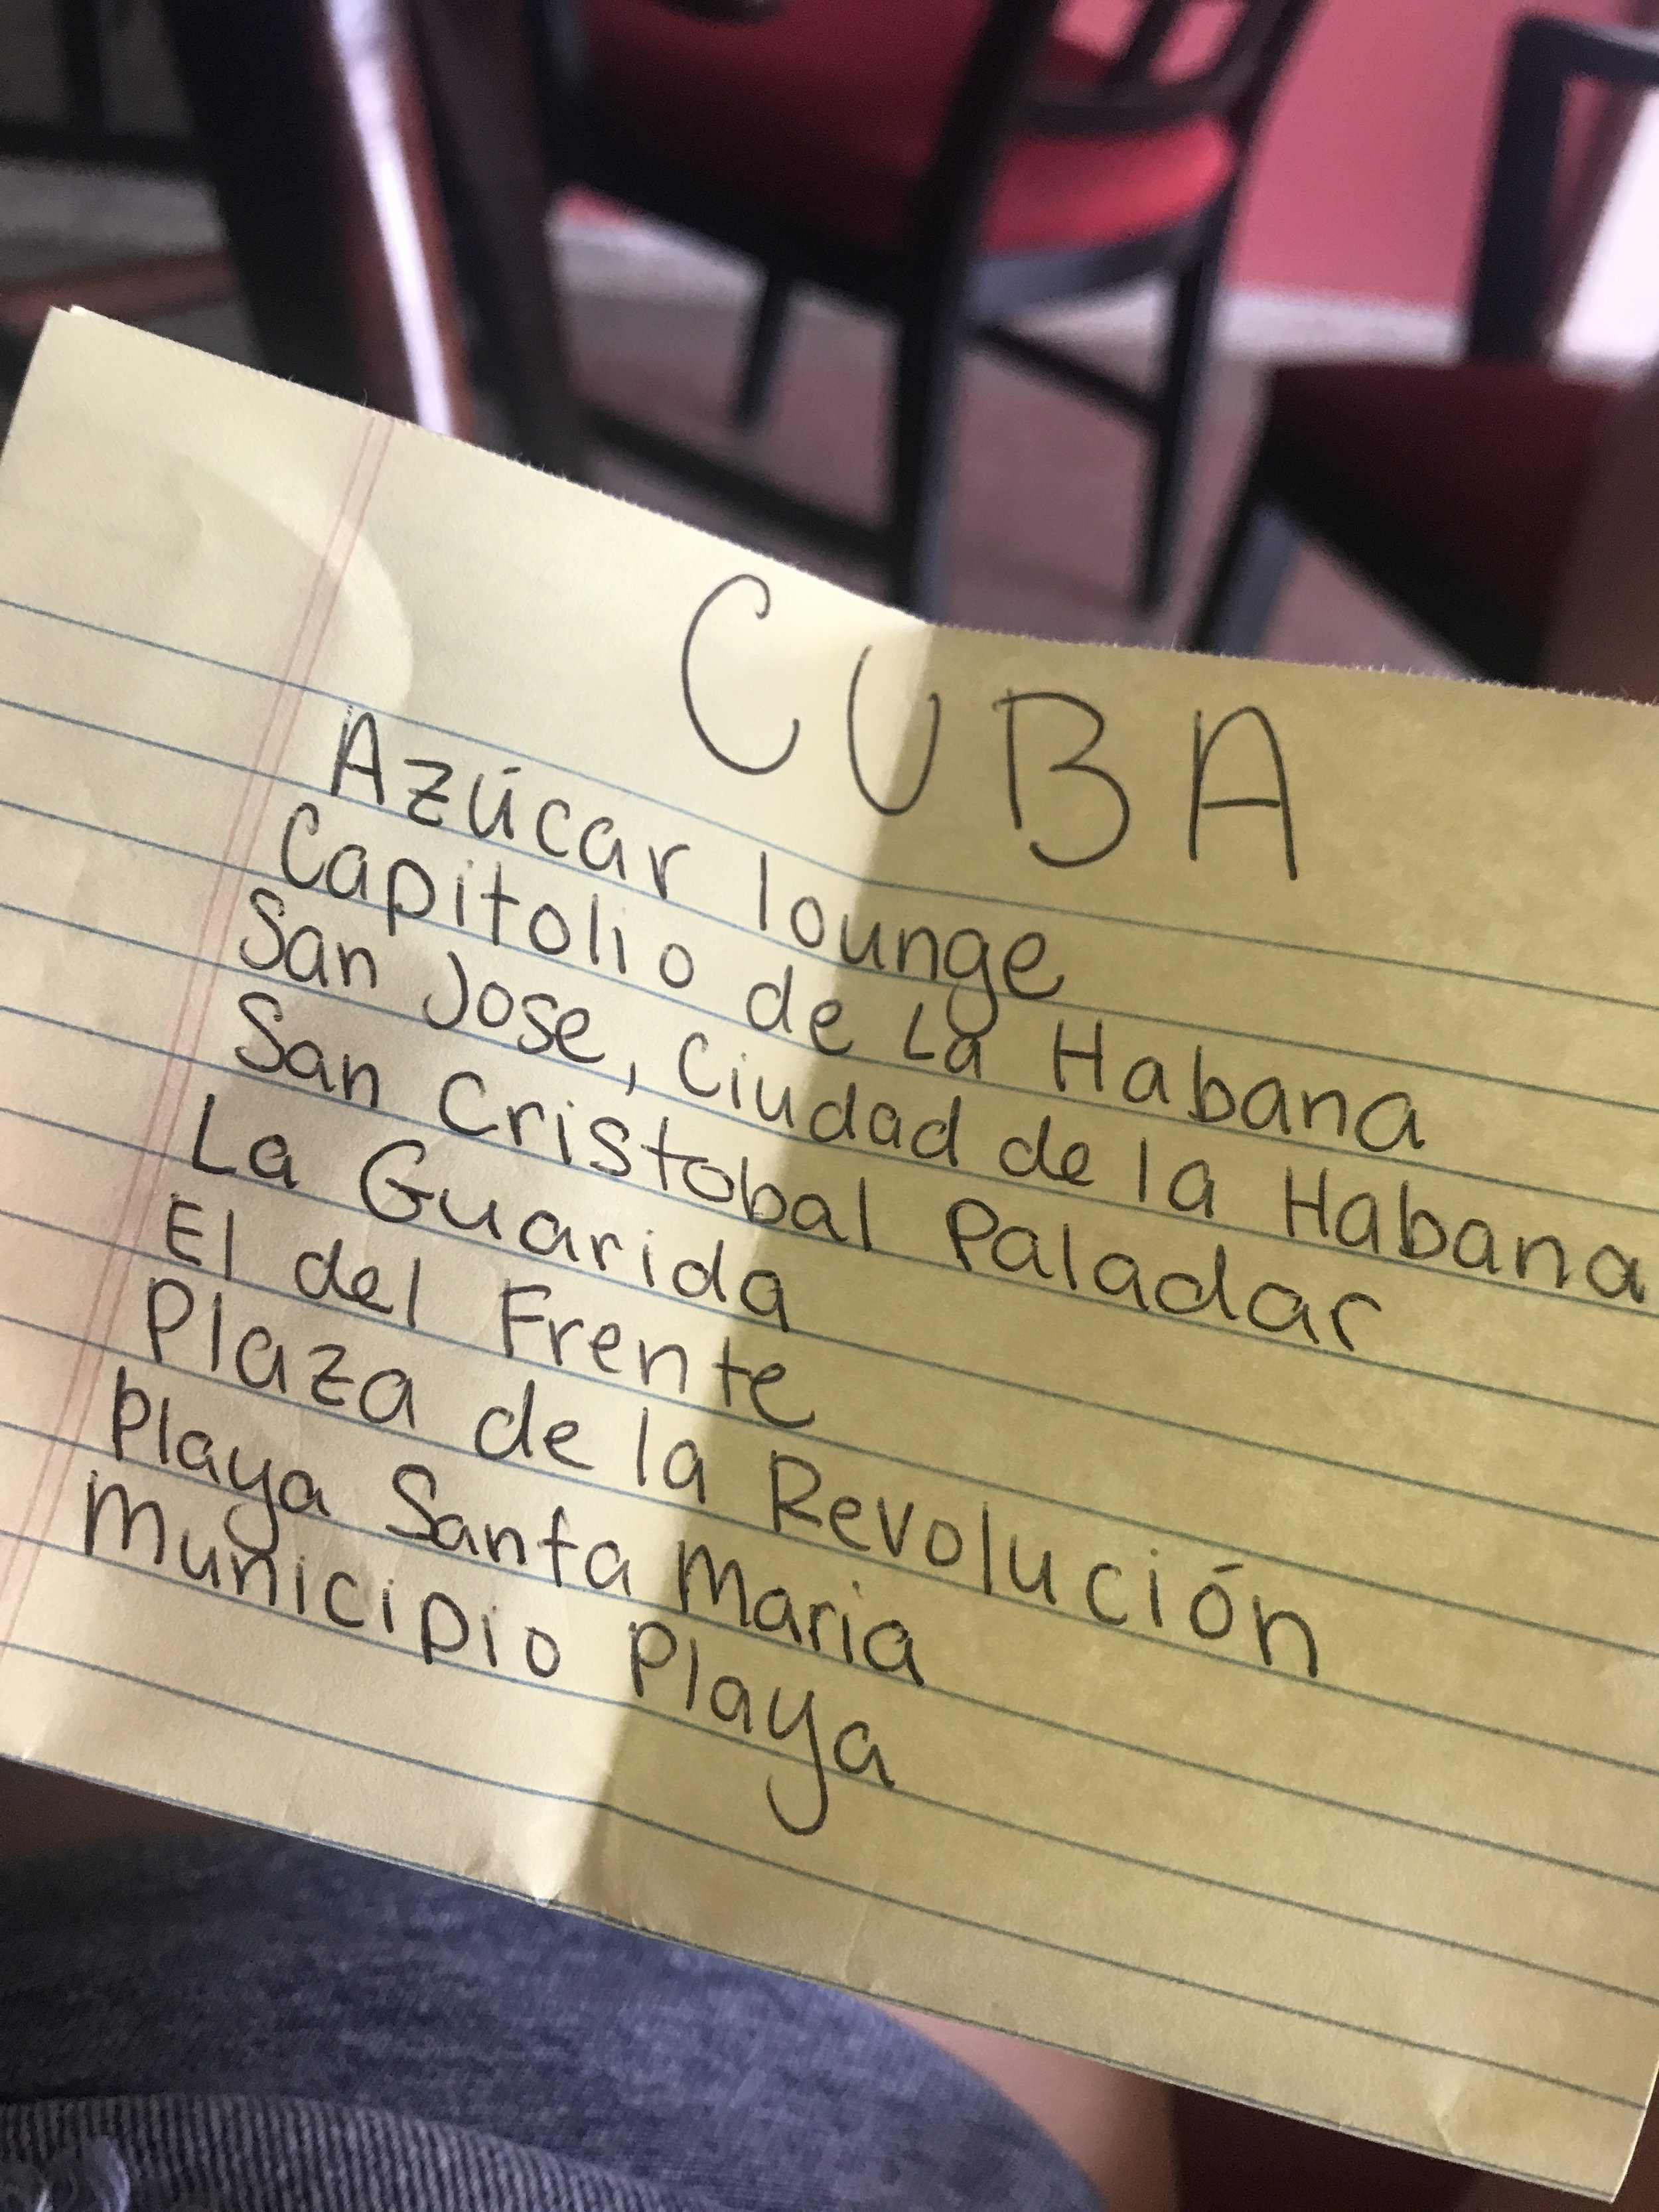 CUBA
Azúcar lounge
Capitolio de La Habana
San Jose, Ciudad de la Habana
San Cristobal Paladar
La Guarida
El del Frente
Plaza de la Revolución
Playa Santa Maria
Municipio Playa